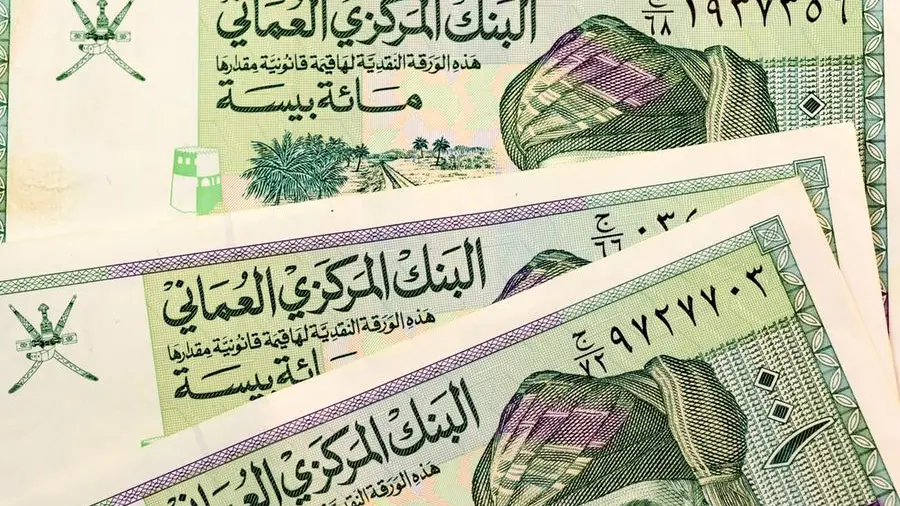 البنك المركزي العماني
ج/٦٨ ١٩٣٧٣٥٦
هذه الورقة النقدية لها قيمة قانونية مقدارها
مائة بيسة
البنك المركزي العماني
ج/٦٦ ٠٣
هذه الورقة النقدية لها قيمة قانونية مقدارها
ائة بيسة
ج/٧٢ ٩٧٢٧٧٠٣
١٠٠
البنك المركزي العماني
هذه الورقة النقدية لها قيمة